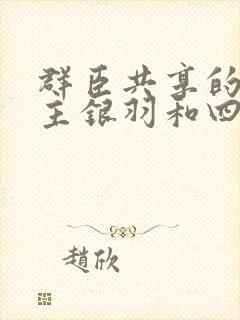 群臣共享的
主銀羽和四
趙欣